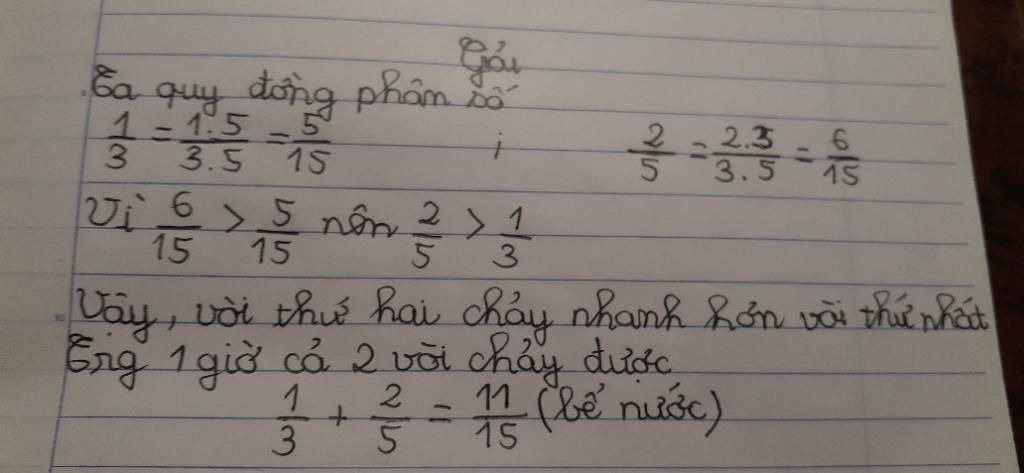 Giải
Ta quy đồng phân số
1/3 = 1.5/3.5 = 5/15 ; 2/5 = 2.3/3.5 = 6/15
Vì 6/15 > 5/15 nên 2/5 > 1/3
Vây, vòi thứ hai chảy nhanh hơn vòi thứ nhất
Trg 1 giờ cả 2 vòi chảy được
1/3 + 2/5 = 11/15 (bể nước)